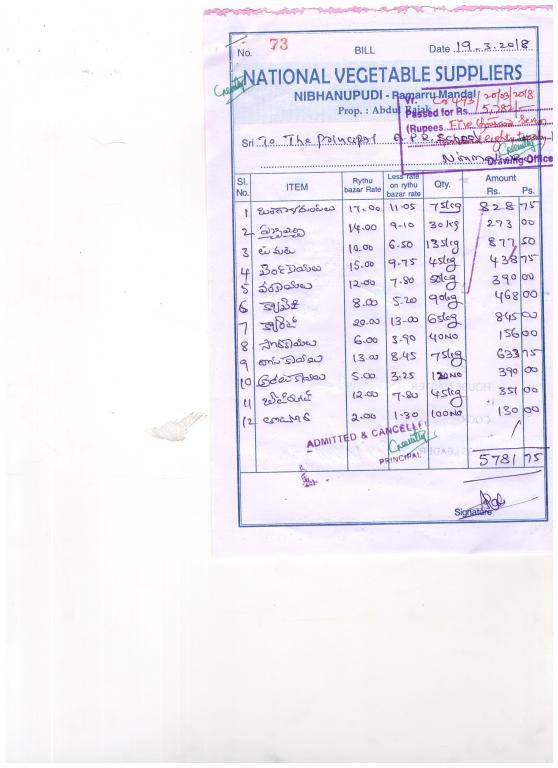 No. 73 BILL Date 19.3.2018
NATIONAL VEGETABLE SUPPLIERS
NIBHANUPUDI - Ramarru Mandal
Prop. : Abdul Razak
Vr. 493/20/03/2018
Passed for Rs. 5,782/-
(Rupees Five thousand Seven
eighty
Drawing Office
Sri To The Principal A.P.R. School
Sl. No. ITEM Rythu bazar Rate Less rate on rythu bazar rate Qty. Amount Rs. Ps.
1 17.00 11.05 75kg 828 75
2 14.00 9-10 30kg 273 00
3 టమాట 10.00 6.50 135kg 877 50
4 15.00 9-75 45kg 438 75
5 వంకాయలు 12.00 7.80 50kg 390 00
6 క్యాబేజి 8.00 5.20 90kg 468 00
7 క్యారెట్ 20.00 13-00 65kg 845 00
8 సొరకాయలు 6.00 3.90 40NO 156 00
9 దొసకాయలు 13.00 8.45 75kg 633 75
10 అరటికాయలు 5.00 3.25 120NO 390 00
11 12.00 7.80 45kg 351 00
12 2.00 1.30 100NO 130 00
ADMITTED & CANCELLE
PRINCIPAL
5781 75
Signature